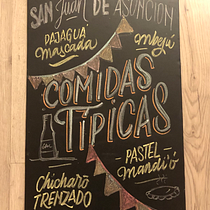 SAN Juan DE ASUNCIÓN
PAJAGUA mbejú
Mascada
COMIDAS
TÍPICAS
PASTEL
Mandi'ó
Chicharõ
TRENZADO